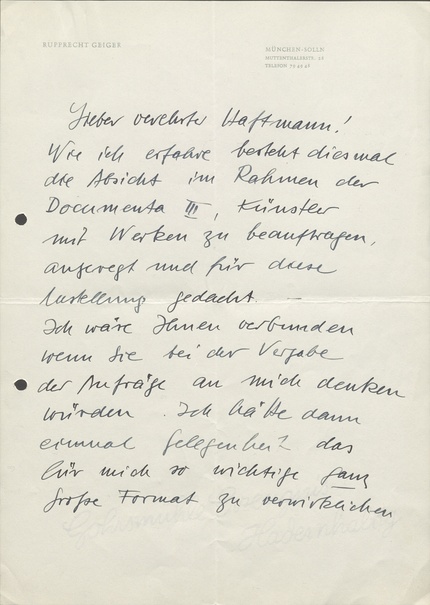 RUPPRECHT GEIGER
MÜNCHEN-SOLLN
MUTTENTHALERSTR. 26
TELEFON 79 42 48
Lieber verehrter Haftmann!
Wie ich erfahre besteht diesmal
die Absicht im Rahmen der
Documenta III, Künstler
mit Werken zu beauftragen,
angeregt und für diese
Ausstellung gedacht. —
Ich wäre Ihnen verbunden
wenn Sie bei der Vergabe
der Aufträge an mich denken
würden. Ich hätte dann
einmal Gelegenheit das
für mich so wichtige ganz
große Format zu verwirklichen